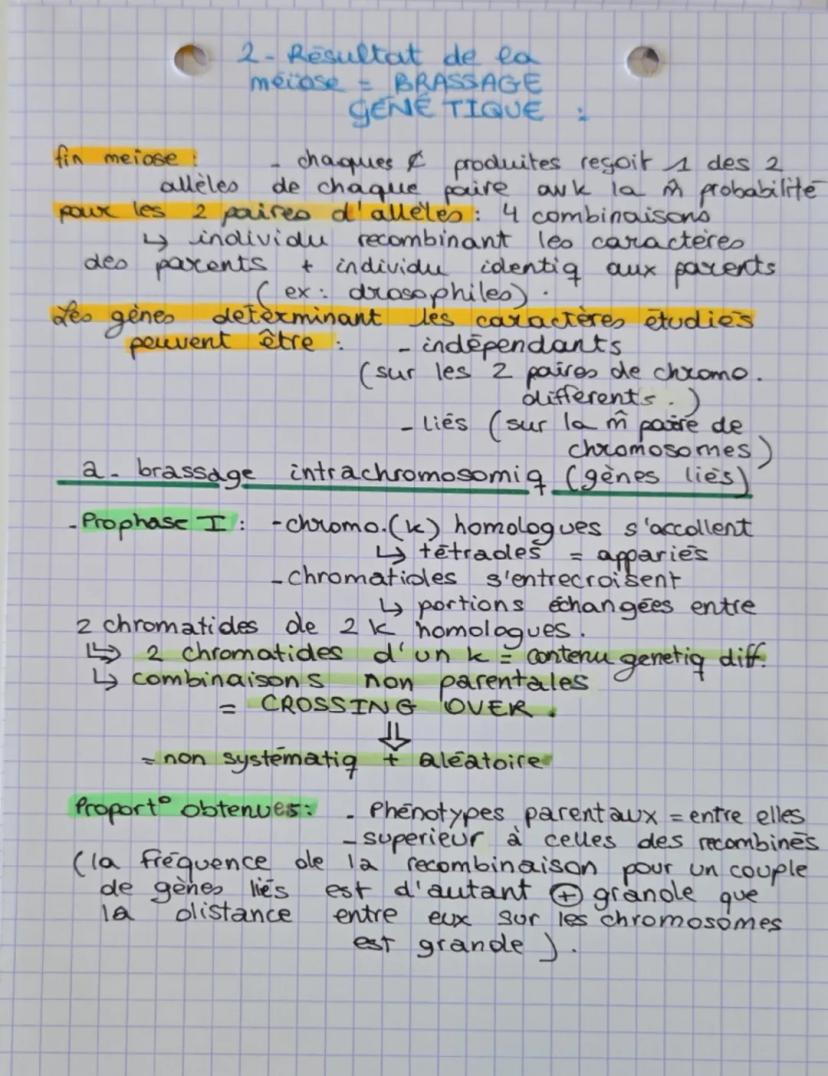 2 - Résultat de la
méiose = BRASSAGE
GÉNÉTIQUE :
fin meiose : - chaques ₵ produites reçoit 1 des 2
allèles de chaque paire avk la m̂ probabilité
pour les 2 paires d'allèles : 4 combinaisons
↳ individu recombinant les caractères
des parents + individu identiq aux parents
(ex : drosophiles).
Les gènes determinant les caractères étudiés
peuvent être : - indépendants
(sur les 2 paires de chromo.
différents.)
- liés (sur la m̂ paire de
chromosomes)
a - brassage intrachromosomiq (gènes liés)
- Prophase I : - chromo.(k) homologues s'accollent
↳ tétrades = appariés
- Chromatides s'entrecroisent
↳ portions échangées entre
2 chromatides de 2 k homologues.
↳ 2 chromatides d'un k = contenu genetiq diff.
↳ combinaisons non parentales
= CROSSING OVER.
⇓
= non systématiq + aléatoire
Proport° obtenues : - Phénotypes parentaux = entre elles
- superieur à celles des recombinés
(la fréquence de la recombinaison pour un couple
de gènes liés est d'autant ⊕ grande que
la distance entre eux sur les chromosomes
est grande).